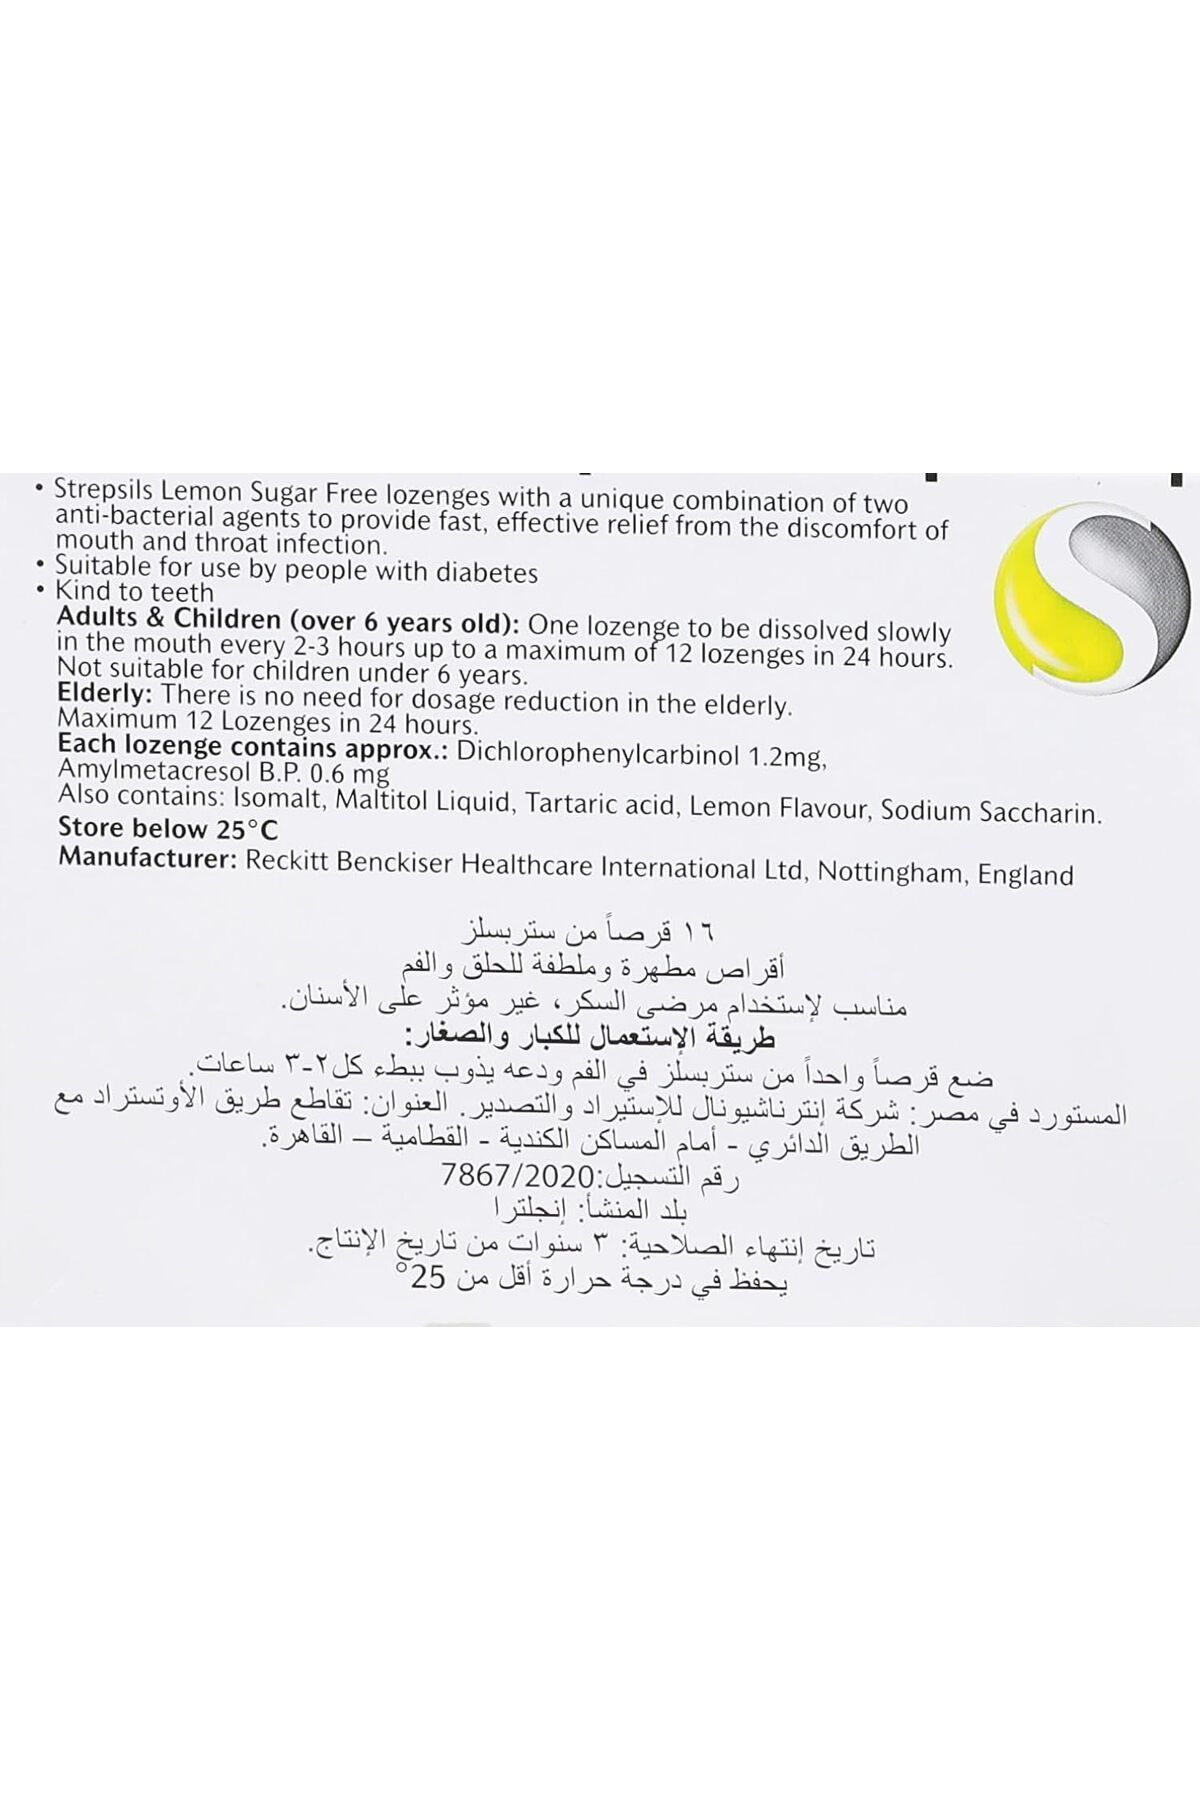 • Strepsils Lemon Sugar Free lozenges with a unique combination of two
anti-bacterial agents to provide fast, effective relief from the discomfort of
mouth and throat infection.
• Suitable for use by people with diabetes
• Kind to teeth
Adults & Children (over 6 years old): One lozenge to be dissolved slowly
in the mouth every 2-3 hours up to a maximum of 12 lozenges in 24 hours.
Not suitable for children under 6 years.
Elderly: There is no need for dosage reduction in the elderly.
Maximum 12 Lozenges in 24 hours.
Each lozenge contains approx.: Dichlorophenylcarbinol 1.2mg,
Amylmetacresol B.P. 0.6 mg
Also contains: Isomalt, Maltitol Liquid, Tartaric acid, Lemon Flavour, Sodium Saccharin.
Store below 25°C
Manufacturer: Reckitt Benckiser Healthcare International Ltd, Nottingham, England
١٦ قرصاً من ستربسلز
أقراص مطهرة وملطفة للحلق والفم
مناسب لإستخدام مرضى السكر، غير مؤثر على الأسنان.
طريقة الإستعمال للكبار والصغار:
ضع قرصاً واحداً من ستربسلز في الفم ودعه يذوب ببطء كل ٢-٣ ساعات.
المستورد في مصر: شركة إنترناشيونال للإستيراد والتصدير. العنوان: تقاطع طريق الأوتستراد مع
الطريق الدائري - أمام المساكن الكندية - القطامية – القاهرة.
رقم التسجيل:7867/2020
بلد المنشأ: إنجلترا
تاريخ إنتهاء الصلاحية: ٣ سنوات من تاريخ الإنتاج.
يحفظ في درجة حرارة أقل من 25°